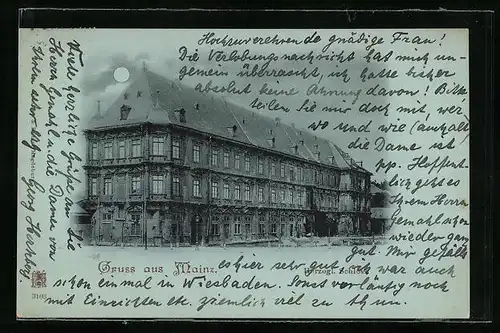 Hochzuverehrende gnädige Frau!
Die Verlobungsnachricht hat mich un-
gemein überrascht, ich hatte bisher
absolut keine Ahnung davon! Bitte
teilen Sie mir doch mit, wer,
wo und wie (
die Dame ist
pp. Hoffent-
lich geht es
Ihrem Herrn
Gemahl schon
wieder ganz
gut. Mir gefällt
es hier sehr gut, ich war auch
schon einmal in Wiesbaden. Sonst vorläufig noch
mit Einrichten etc. ziemlich viel zu thun.
Viele herzliche Grüße an Sie
Herrn Gemahl u. die Damen von
Ihrem sehr erg.
Georg
Gruss aus Mainz.
Herzogl. Schloss
3103